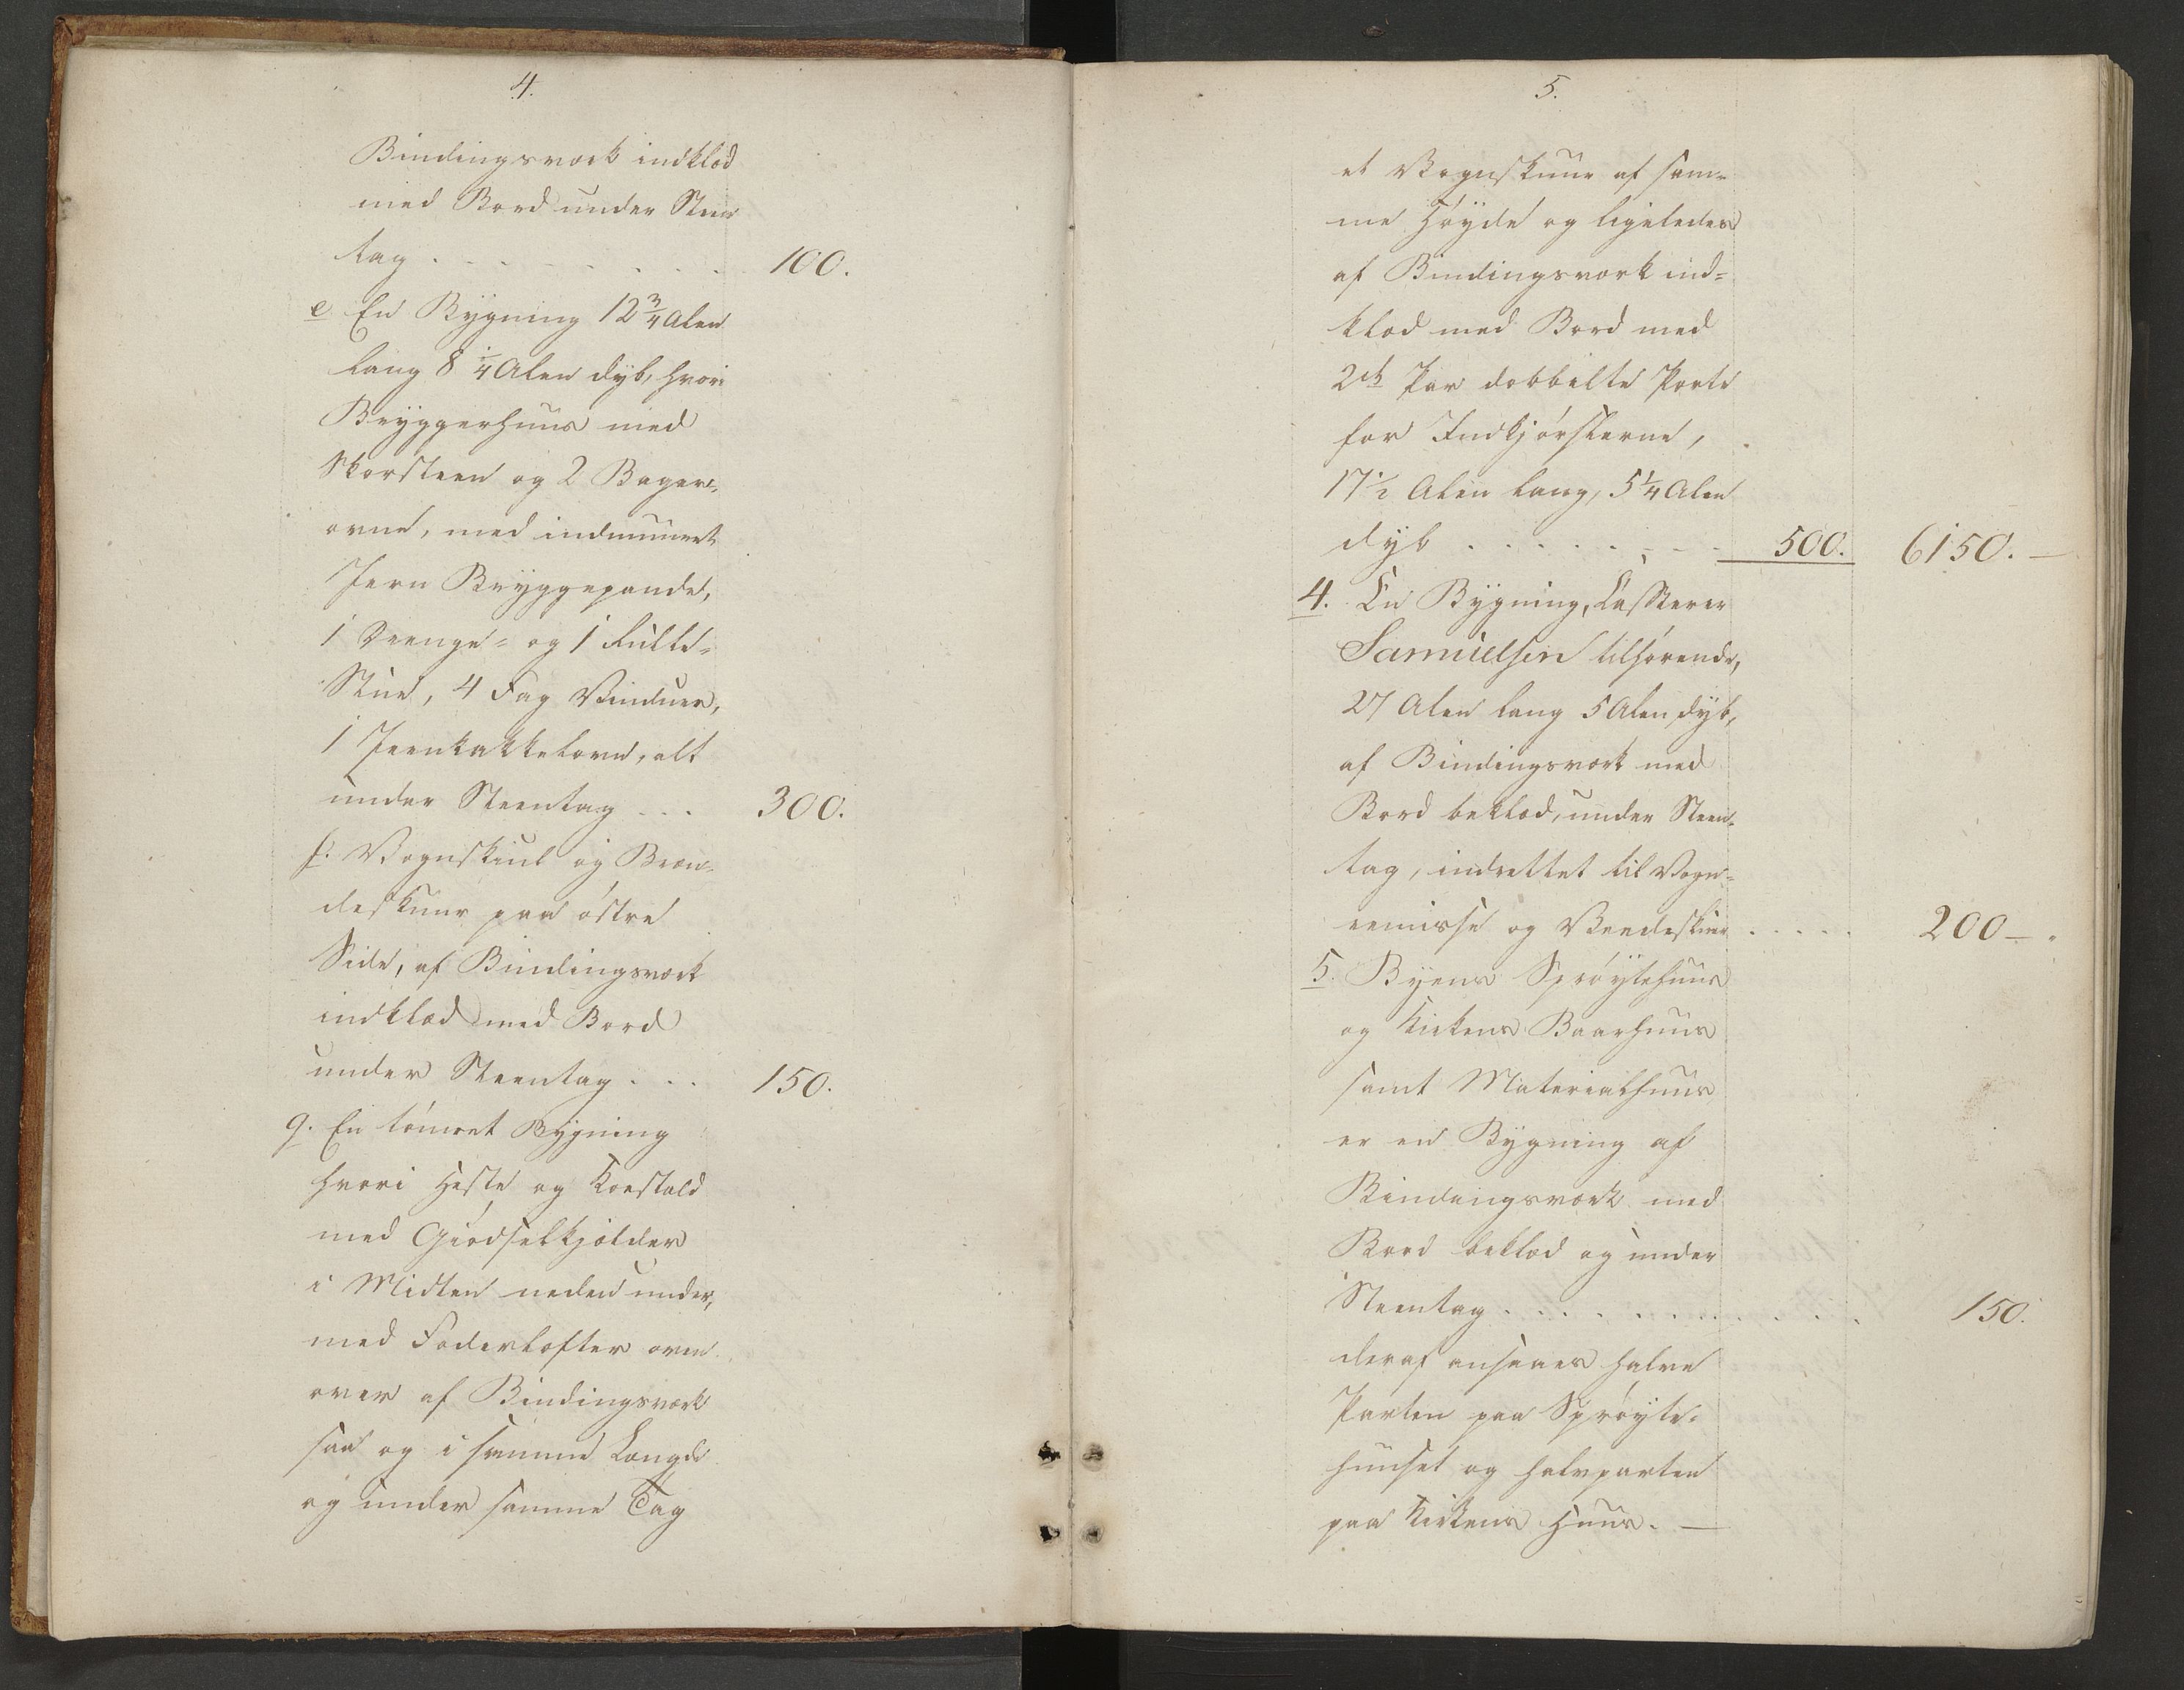 4.
Bindingsværk indklæd
med Bord under Steen
tag . . . . . . . . 100.
e En Bygning 12 3/4 Alen
lang 8 1/4 Alen dyb, hvori
Bryggerhuus med
Skorsteen og 2 Bager-
ovne, med indmuuret
Jern Bryggepande,
1 Drenge- og 1 Rulle-
Stue, 4 Fag Vinduer,
1 Jernkakkelovn, alt
under Steentag . . . 300.
f. Vognskiul og Bræn-
deskuur paa østre
Side, af Bindingsværk
indklæd med Bord
under Steentag . . . 150.
g. En tømret Bygning
hvori Heste og Kostald
med Giødselkjælder
i Midten neden under,
med Foderlofter oven
over af Bindingsværk
saa og i samme Længde
og under samme Tag
5.
et Vognskuur af sam-
me Høyde og ligeledes
af Bindingsværk ind-
klæd med Bord med
2de Par dobbelte Porte
for Indkjørslerne,
17 1/2 Alen lang, 5 1/4 Alen
dyb . . . . . . . . 500. 6150.—
4. En Bygning, Casserer
Samuelsen tilhørende,
27 Alen lang 5 Alen dyb,
af Bindingsværk med
Bord beklæd, under Steen-
tag, indrettet til Vogn-
remisse og Vendeskuur . . . . . 200—.
5. Byens Sprøytehuus
og Kirkens Baarhuus
samt Materialhuus
er en Bygning af
Bindingsværk med
Bord beklæd og under
Steentag . . . . . . . . . . . 150.
deraf ansaaes halve
Parten paa Sprøyte-
huuset og halvparten
paa Kirkens Huus. —